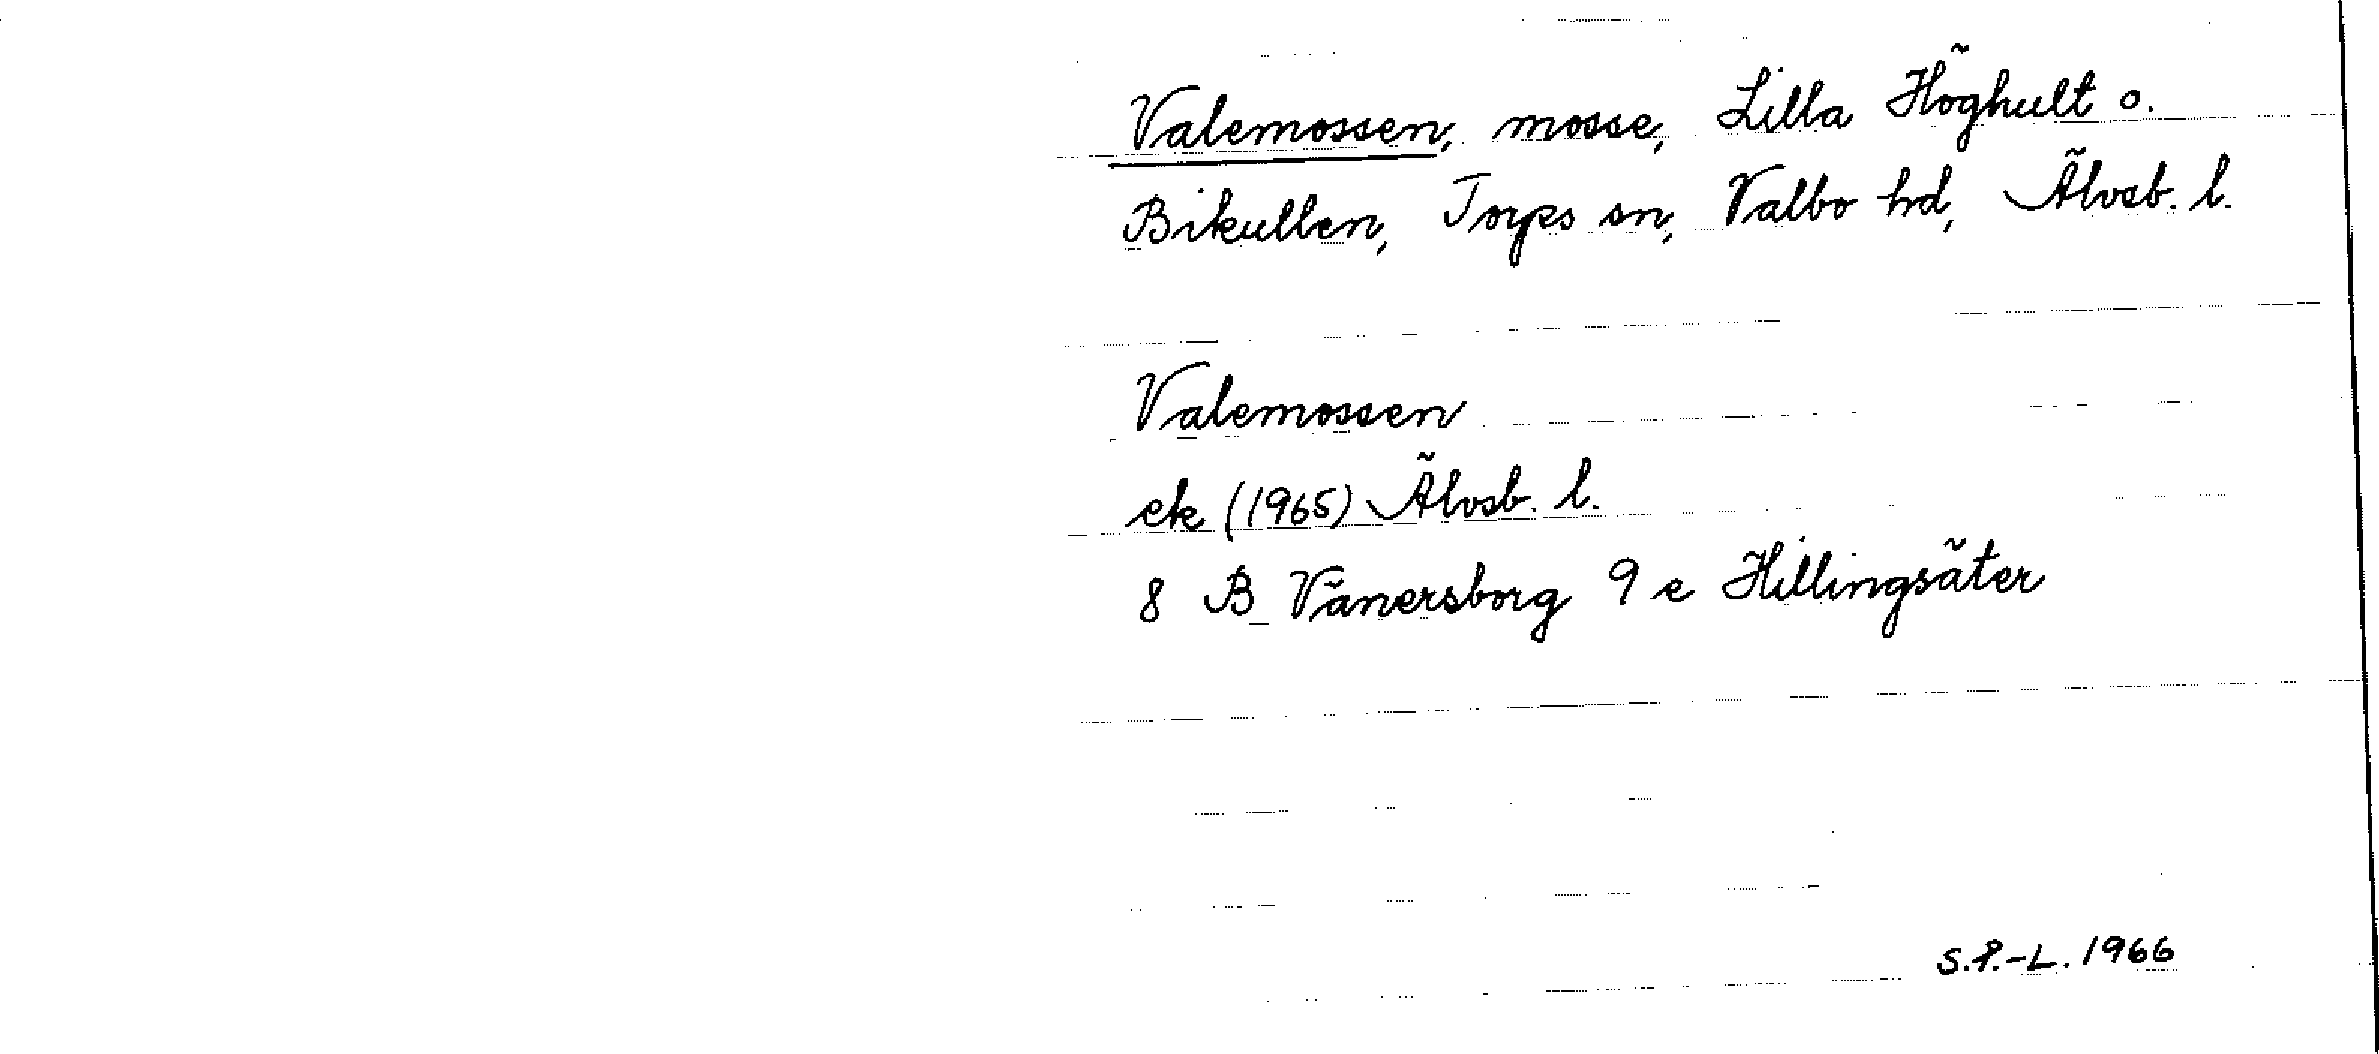 Valemossen, mosse, Lilla Höghult o.
Bikullen, Torps sn, Valbo hd, Älvsb. l.
Valemossen
ek (1965) Älvsb. l.
8 B Vänersborg 9 e Hillingsäter
S.P.-L. 1966